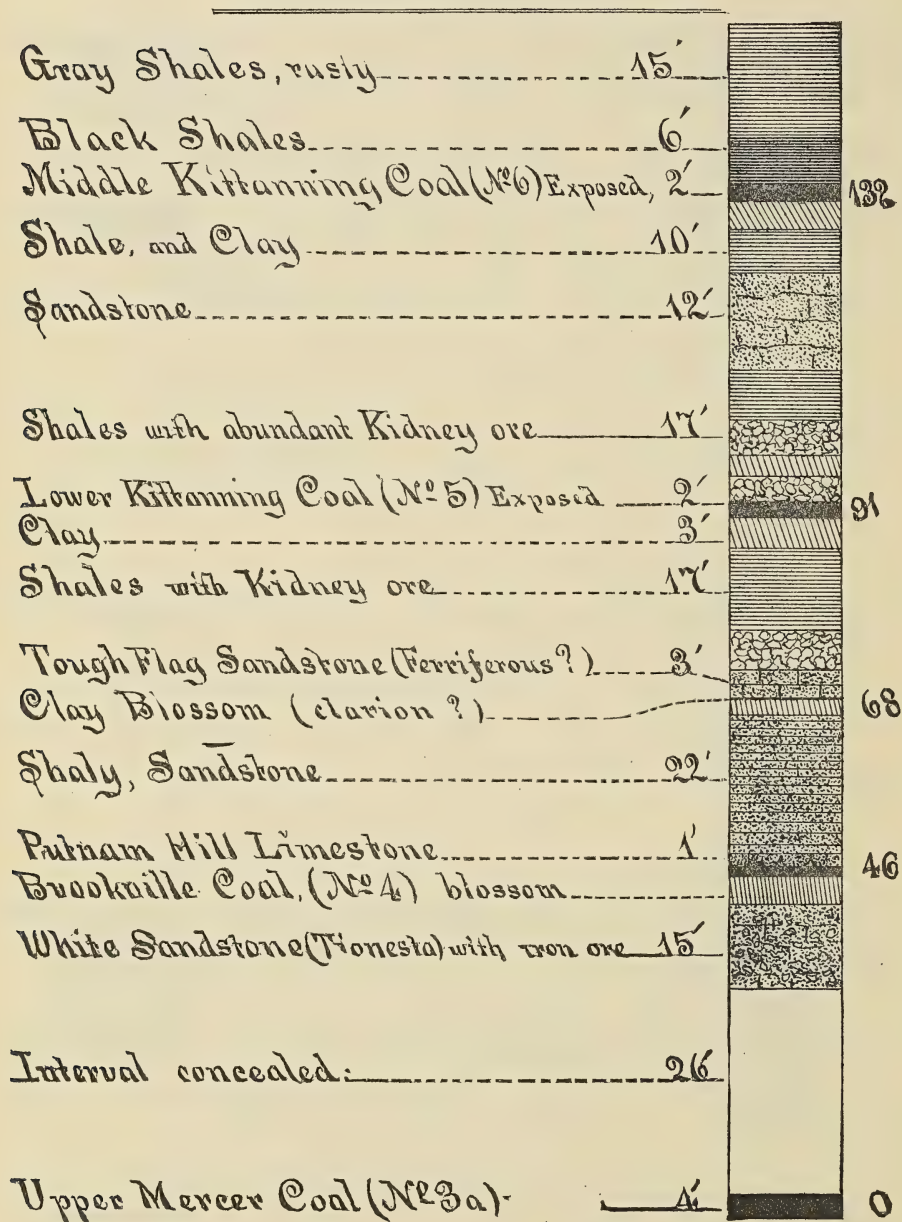 Gray Shales, rusty 15'
Black Shales 6'
Middle Kittanning Coal (Nº 6) Exposed, 2' 132
Shale, and Clay 10'
Sandstone 12'
Shales with abundant Kidney ore 17'
Lower Kittanning Coal (Nº 5) Exposed 2' 91
Clay 3'
Shales with Kidney ore 17'
Tough Flag Sandstone (Ferriferous?) 3'
Clay Blossom (clarion?) 68
Shaly, Sandstone 22'
Putnam Hill Limestone 1' 46
Brookville Coal, (Nº 4) blossom
White Sandstone (Tionesta) with iron ore 15'
Interval concealed: 26'
Upper Mercer Coal (Nº 3a) 4' 0